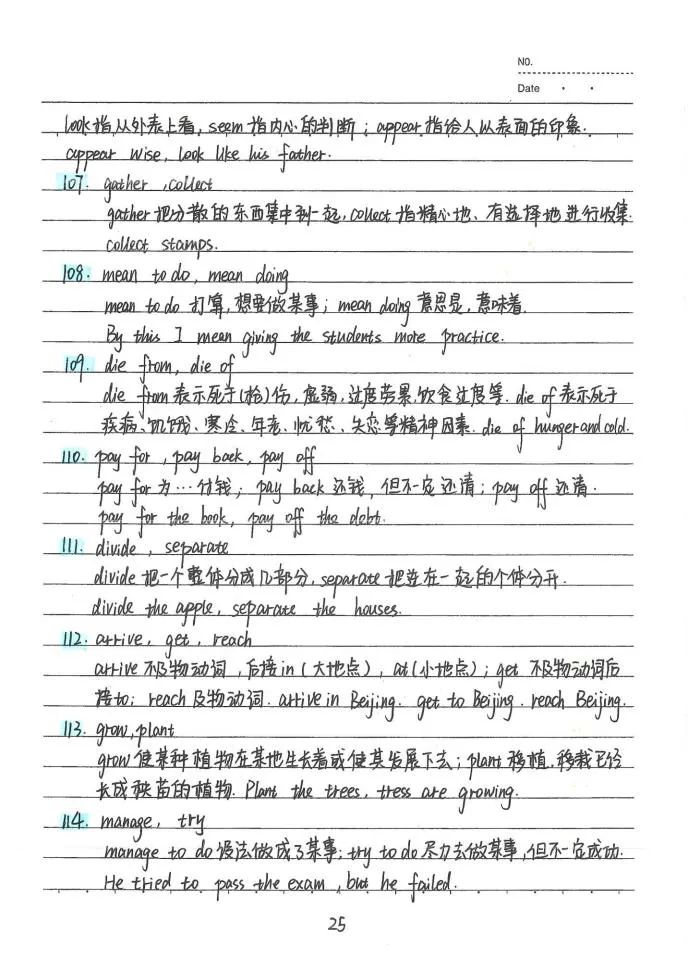 NO.
Date
look指从外表上看,seem指内心的判断;appear指给人以表面的印象.
appear wise, look like his father.
107. gather ,collect
gather把分散的东西集中到一起,collect指精心地、有选择地进行收集.
collect stamps.
108. mean to do, mean doing
mean to do 打算,想要做某事;mean doing 意思是,意味着.
By this I mean giving the students more practice.
109. die from, die of
die from表示死于(枪)伤,虚弱,过度劳累,饮食过度等. die of 表示死于
疾病、饥饿、寒冷、年老、忧愁、失恋等精神因素. die of hunger and cold.
110. pay for , pay back, pay off
pay for为…付钱;pay back 还钱,但不一定还清;pay off 还清.
pay for the book, pay off the debt.
111. divide , separate
divide 把一个整体分成几部分,separate把连在一起的个体分开.
divide the apple, separate the houses.
112. arrive, get , reach
arrive不及物动词,后接in(大地点),at(小地点);get 不及物动词后
接to; reach及物动词. arrive in Beijing. get to Beijing. reach Beijing.
113. grow, plant
grow使某种植物在某地生长着或使其发展下去;plant移植.移栽已经
长成秧苗的植物. Plant the trees, tress are growing.
114. manage, try
manage to do设法做成了某事;try to do尽力去做某事,但不一定成功.
He tried to pass the exam, but he failed.
25